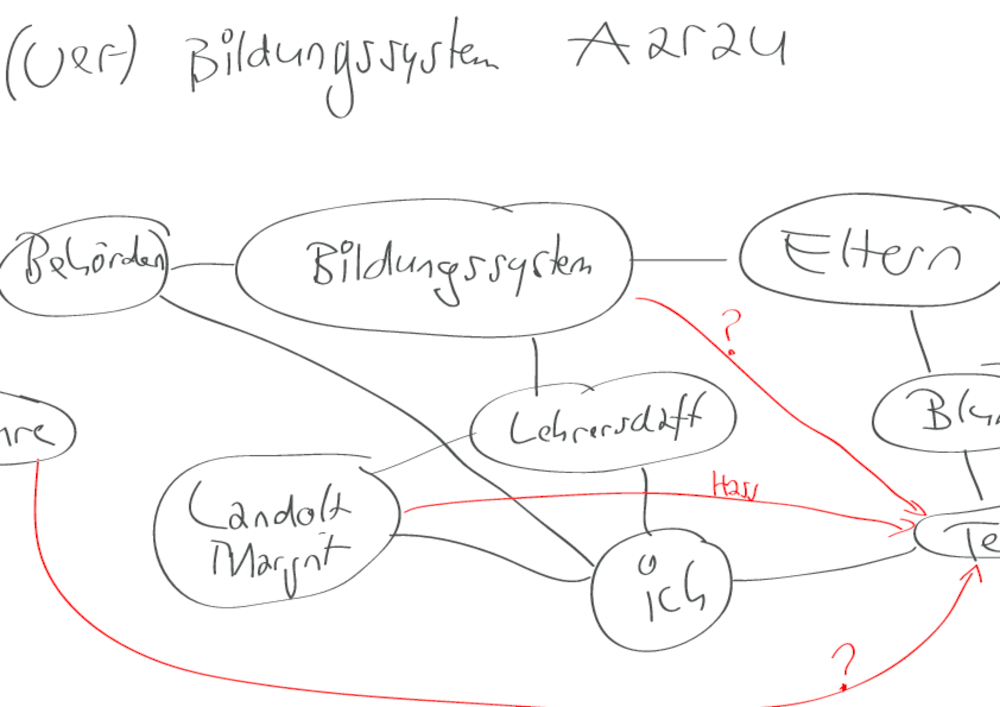 (Ver) Bildungssystem Aarau
Behörden
Bildungssystem
Eltern
?
Lehrerschaft
Hass
Landolt
ich
?